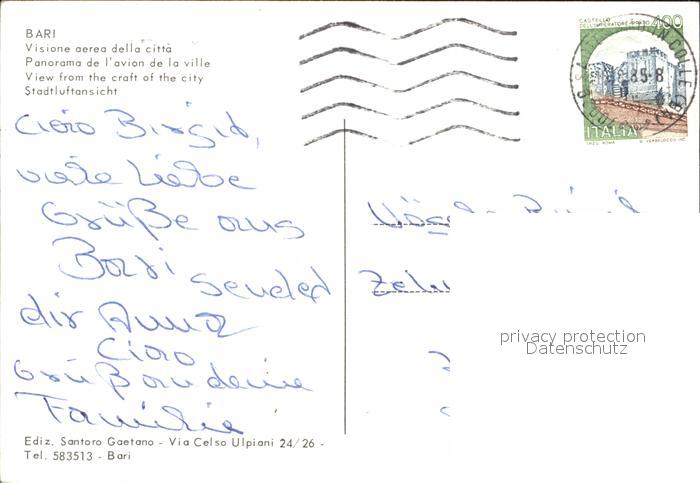 BARI
Visione aerea della città
Panorama de l'avion de la ville
View from the craft of the city
Stadtluftansicht
Ciao Birgit,
viele Liebe
Grüße aus
Bari sendet
dir Anna
Ciao
Grüß an deine
Familie
Ediz. Santoro Gaetano - Via Celso Ulpiani 24/26 -
Tel. 583513 - Bari
CASTELLO
400
85-8
ITALIA
privacy protection
Datenschutz